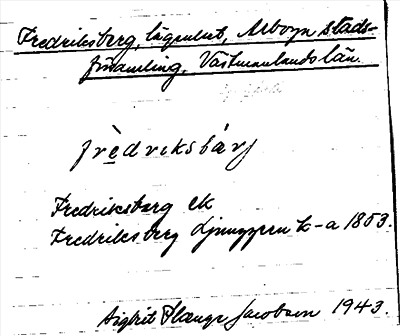 Fredriksberg, lägenhet, Arboga stads-
församling, Västmanlands län.
frèdriksbárj
Fredriksberg ek
Fredriksberg Ljunggren L-a 1853.
Sigbrit Plænge Jacobson 1943.